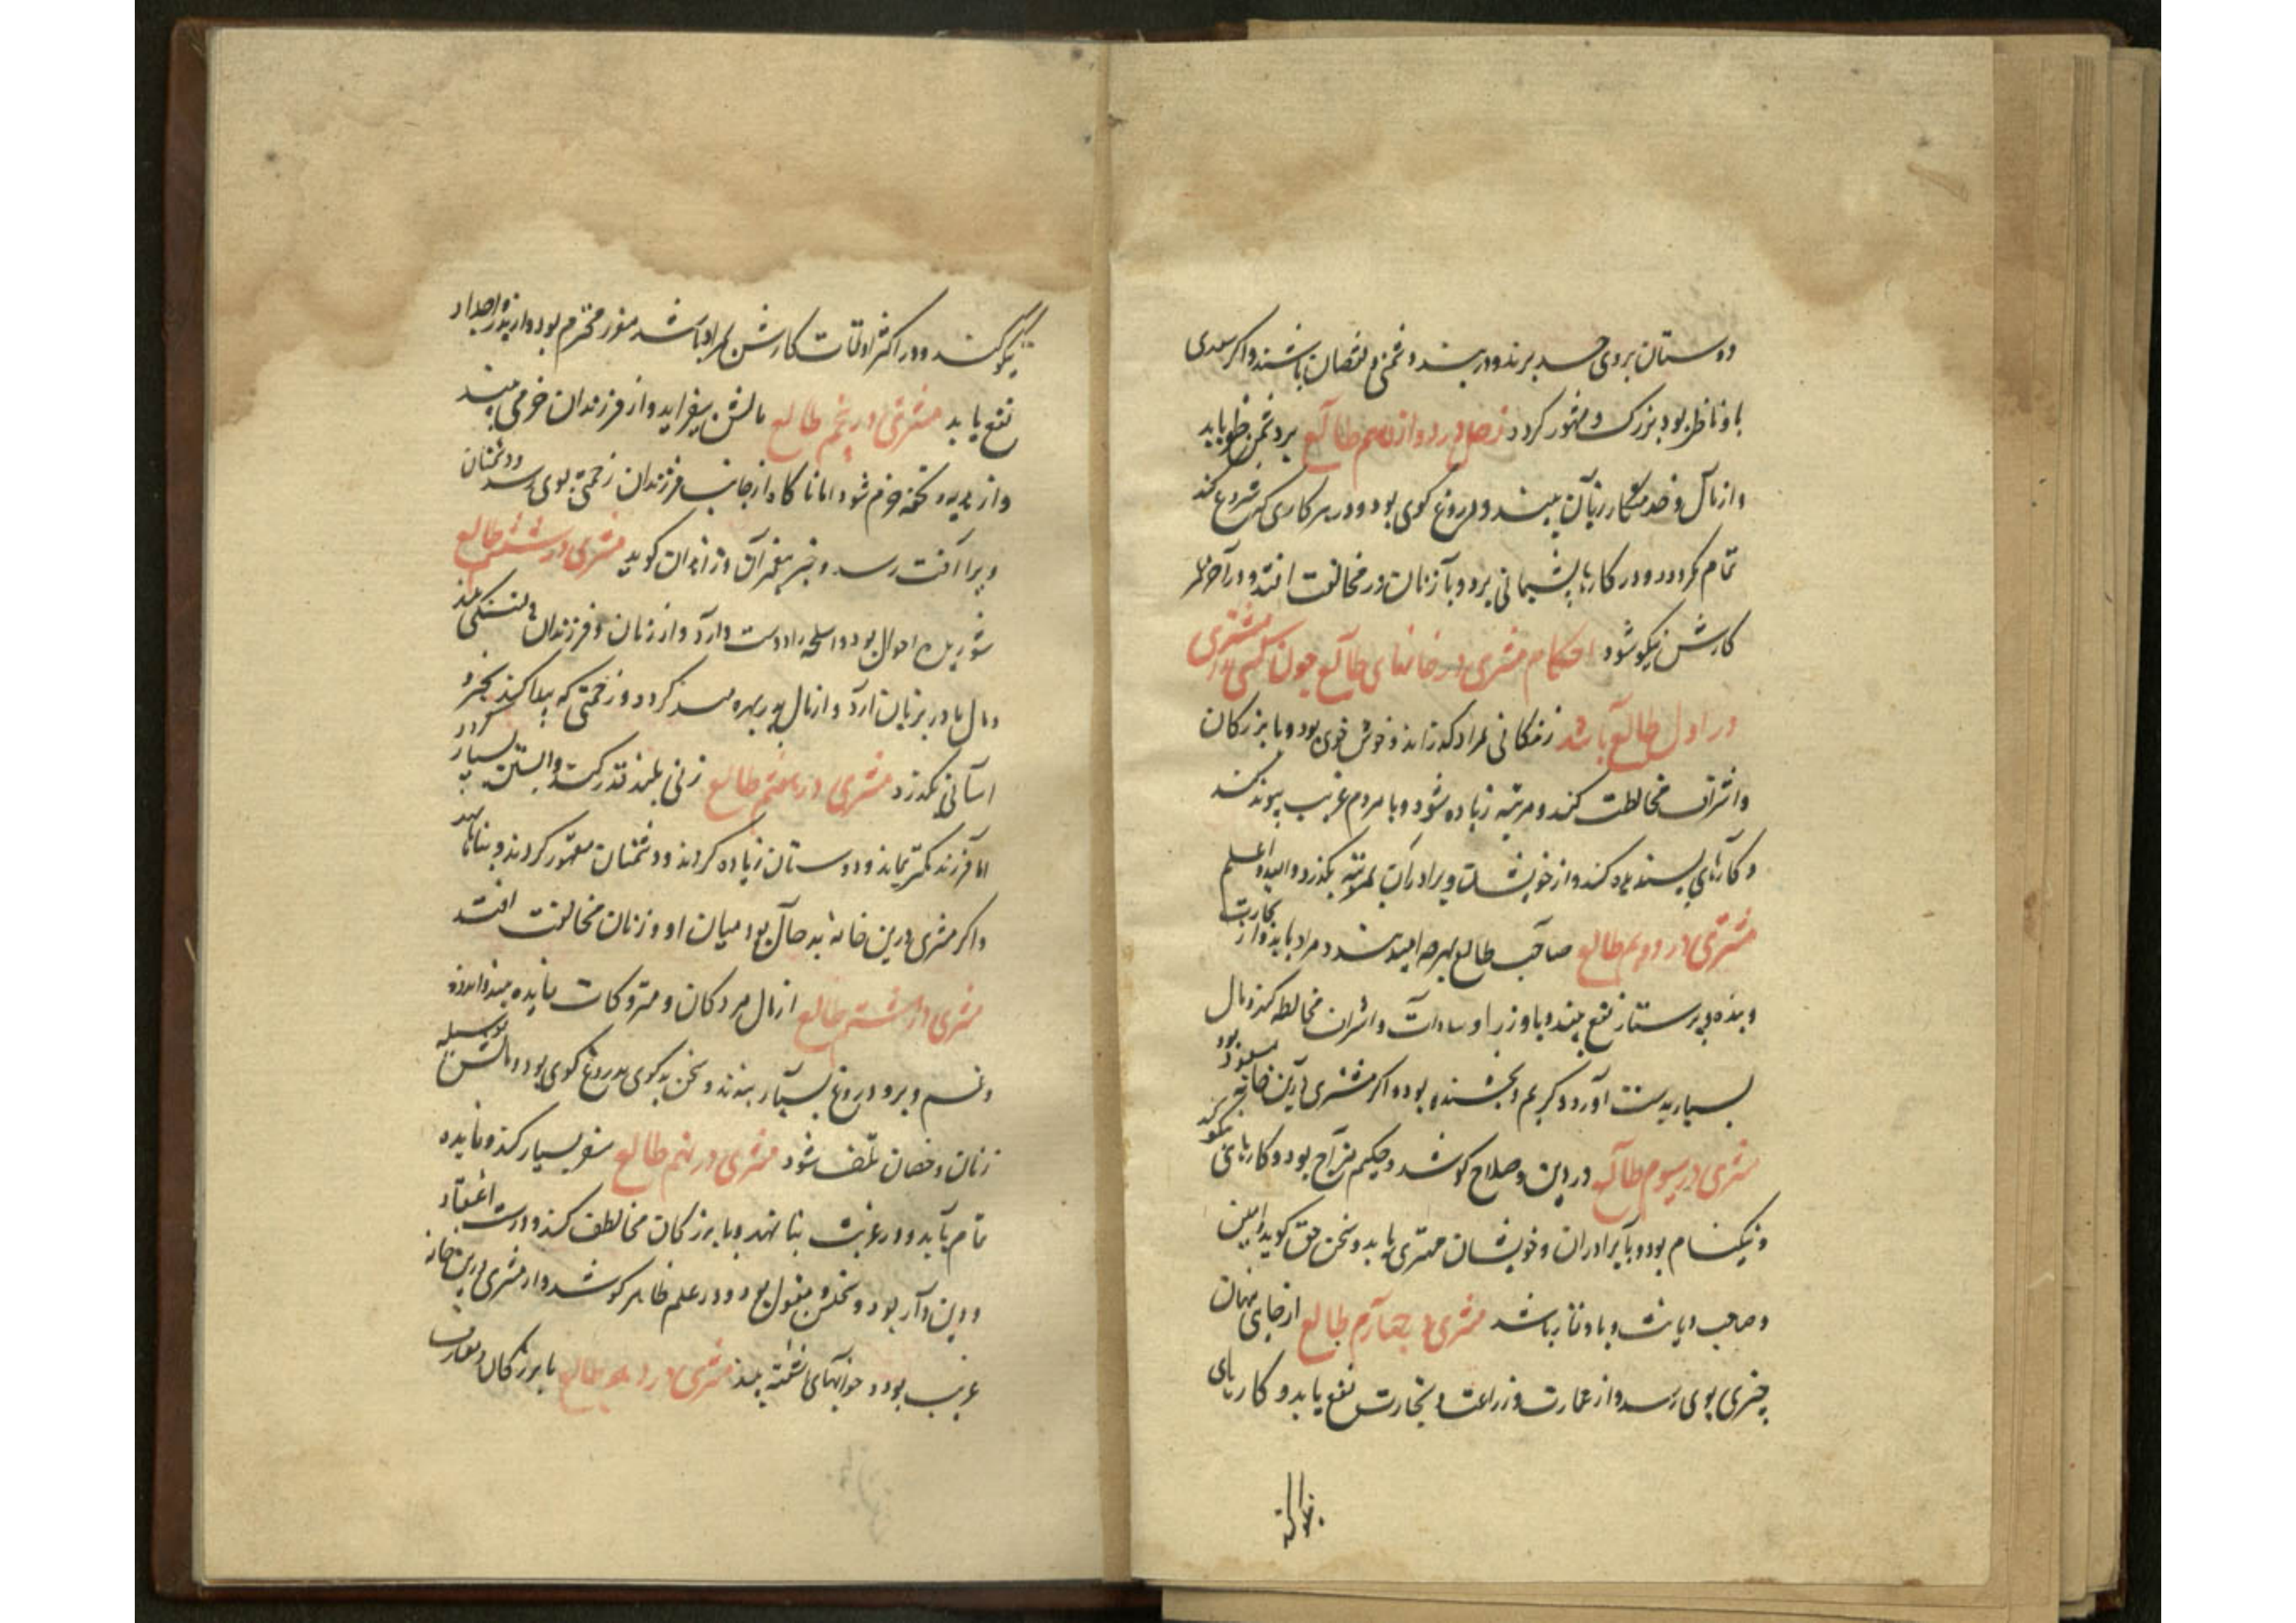 دوستان بر وی حسد برند و در بند دشمنی و نقصان باشند و اکر سعدی
با و ناظر بود بزرک و مشهور کردد زحل در دوازدهم طالع بر دشمن ظفر یابد
و از مال و خدمتکار زیان بیند و دروغ کوی بود و در هر کاری که شروع کند
تمام نکردد و در کارها پشیمانی برد و با زنان در مخالفت افتد و در آخر عمر
کارش نیکو شود احکام مشتری در خانهای طالع چون کسی را مشتری
در اول طالع باشد زندکانی بمراد کذراند و خوش خوی بود و با بزرکان
و اشراف مخالطت کند و مرتبه زیاده شود و با مردم غریب پیوند کند
و کارهای پسندیده کند و از خویشان و برادران بمرتبه بکذرد والله اعلم
مشتری در دویم طالع صاحب طالع بهرچه امید بندد مراد یابد و از تجارت
و بنده و پرستار نفع بیند و با وزرا و سادات و اشراف مخالطه کند و مال
بسیار بدست آورد و کریم و بخشنده بود و اکر مشتری درین خانه مسعود بود
مشتری در سیوم طالع در دین و صلاح کوشد و حکیم مزاج بود و کارهای نیکو کند
و نیکنام بود و با برادران و خویشان مهتری یابد و سخن حق کوید و امین
و صاحب دیانت و با وقار باشد مشتری در چهارم طالع از جای پنهان
چیزی بوی رسد و از عمارت و زراعت و تجارت نفع یابد و کارهای
نیکو کند و در اکثر اوقات کارش بمراد باشد معزز و محترم بود و از پدر و اجداد
نفع یابد مشتری در پنجم طالع مالش بیفزاید و از فرزندان خرمی بیند
و از هدیه و تحفه خرم شود اما ناکاه از جانب فرزندان زحمتی بوی رسد و دشمنان
ویرا آفت رسد و خبر پیغمبران و زاهدان کوید مشتری در ششم طالع
شوریده احوال بود و اسلحه را دوست دارد و از زنان و فرزندان دلتنکی بیند
و مال پدر بزیان آرد و از مال پدر بهره مند کردد و زحمتی که پیدا کند بخیر و
آسانی بکذرد مشتری در هفتم طالع زنی بلند قدر کند و آبستن بسیار کردد
اما فرزند کمتر بماند و دوستان زیاده کردند و دشمنان مقهور کردند و بناها نهد
و اکر مشتری درین خانه بد حال بود میان او و زنان مخالفت افتد
مشتری در هشتم طالع از مال مردکان و متروکات فایده بیند و اندوه
و غم و برو دروغ بسیار بندند و سخن بد کوی و دروغ کوی بود و مالش بوسیله
زنان و خصمان تلف شود مشتری در نهم طالع سفر بسیار کند و فایده
تمام یابد و در غربت بنا نهد و با بزرکان مخالطت کند و درست اعتقاد
و دین دار بود و سخنش مقبول بود و در علم ظاهر کوشد و از مشتری درین خانه
غریب بود و خوابهای آشفته بیند مشتری در دهم طالع با بزرکان و معارف